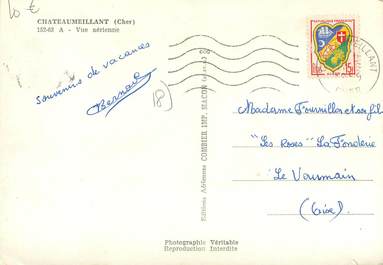 10 €
CHATEAUMEILLANT (Cher)
152-63 A - Vue aérienne
souvenirs de vacances
Bernard
18)
Editions Aériennes COMBIER IMP. MACON
REPUBLIQUE FRANÇAISE
15F
CHER
Madame Fourvillon et son fils
"Les Roses" La Fonderie
Le Vourmain
(Oise)
Photographie Véritable
Reproduction Interdite